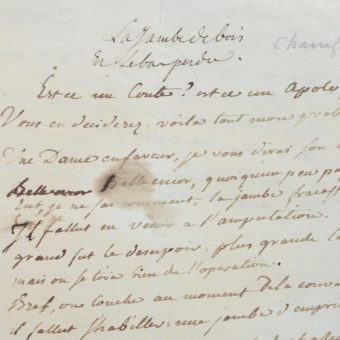 La Jambe de bois
Et le bas perdu.
Chamf
Est ce un Conte? est ce un Apolo
Vous en déciderez. voilà tout mon prolo
Une Dame en faveur, je vous dirai son n
Belle encor, quoiqu'un peu pa
Eut, je ne sai comment, la jambe fracass
Il fallut en venir à l'amputation.
grand fut le desespoir, plus grande la
mais on se tira bien de l'opération.
Bref, on touche au moment de la conva
il fallut s'habiller: une jambe d'empru